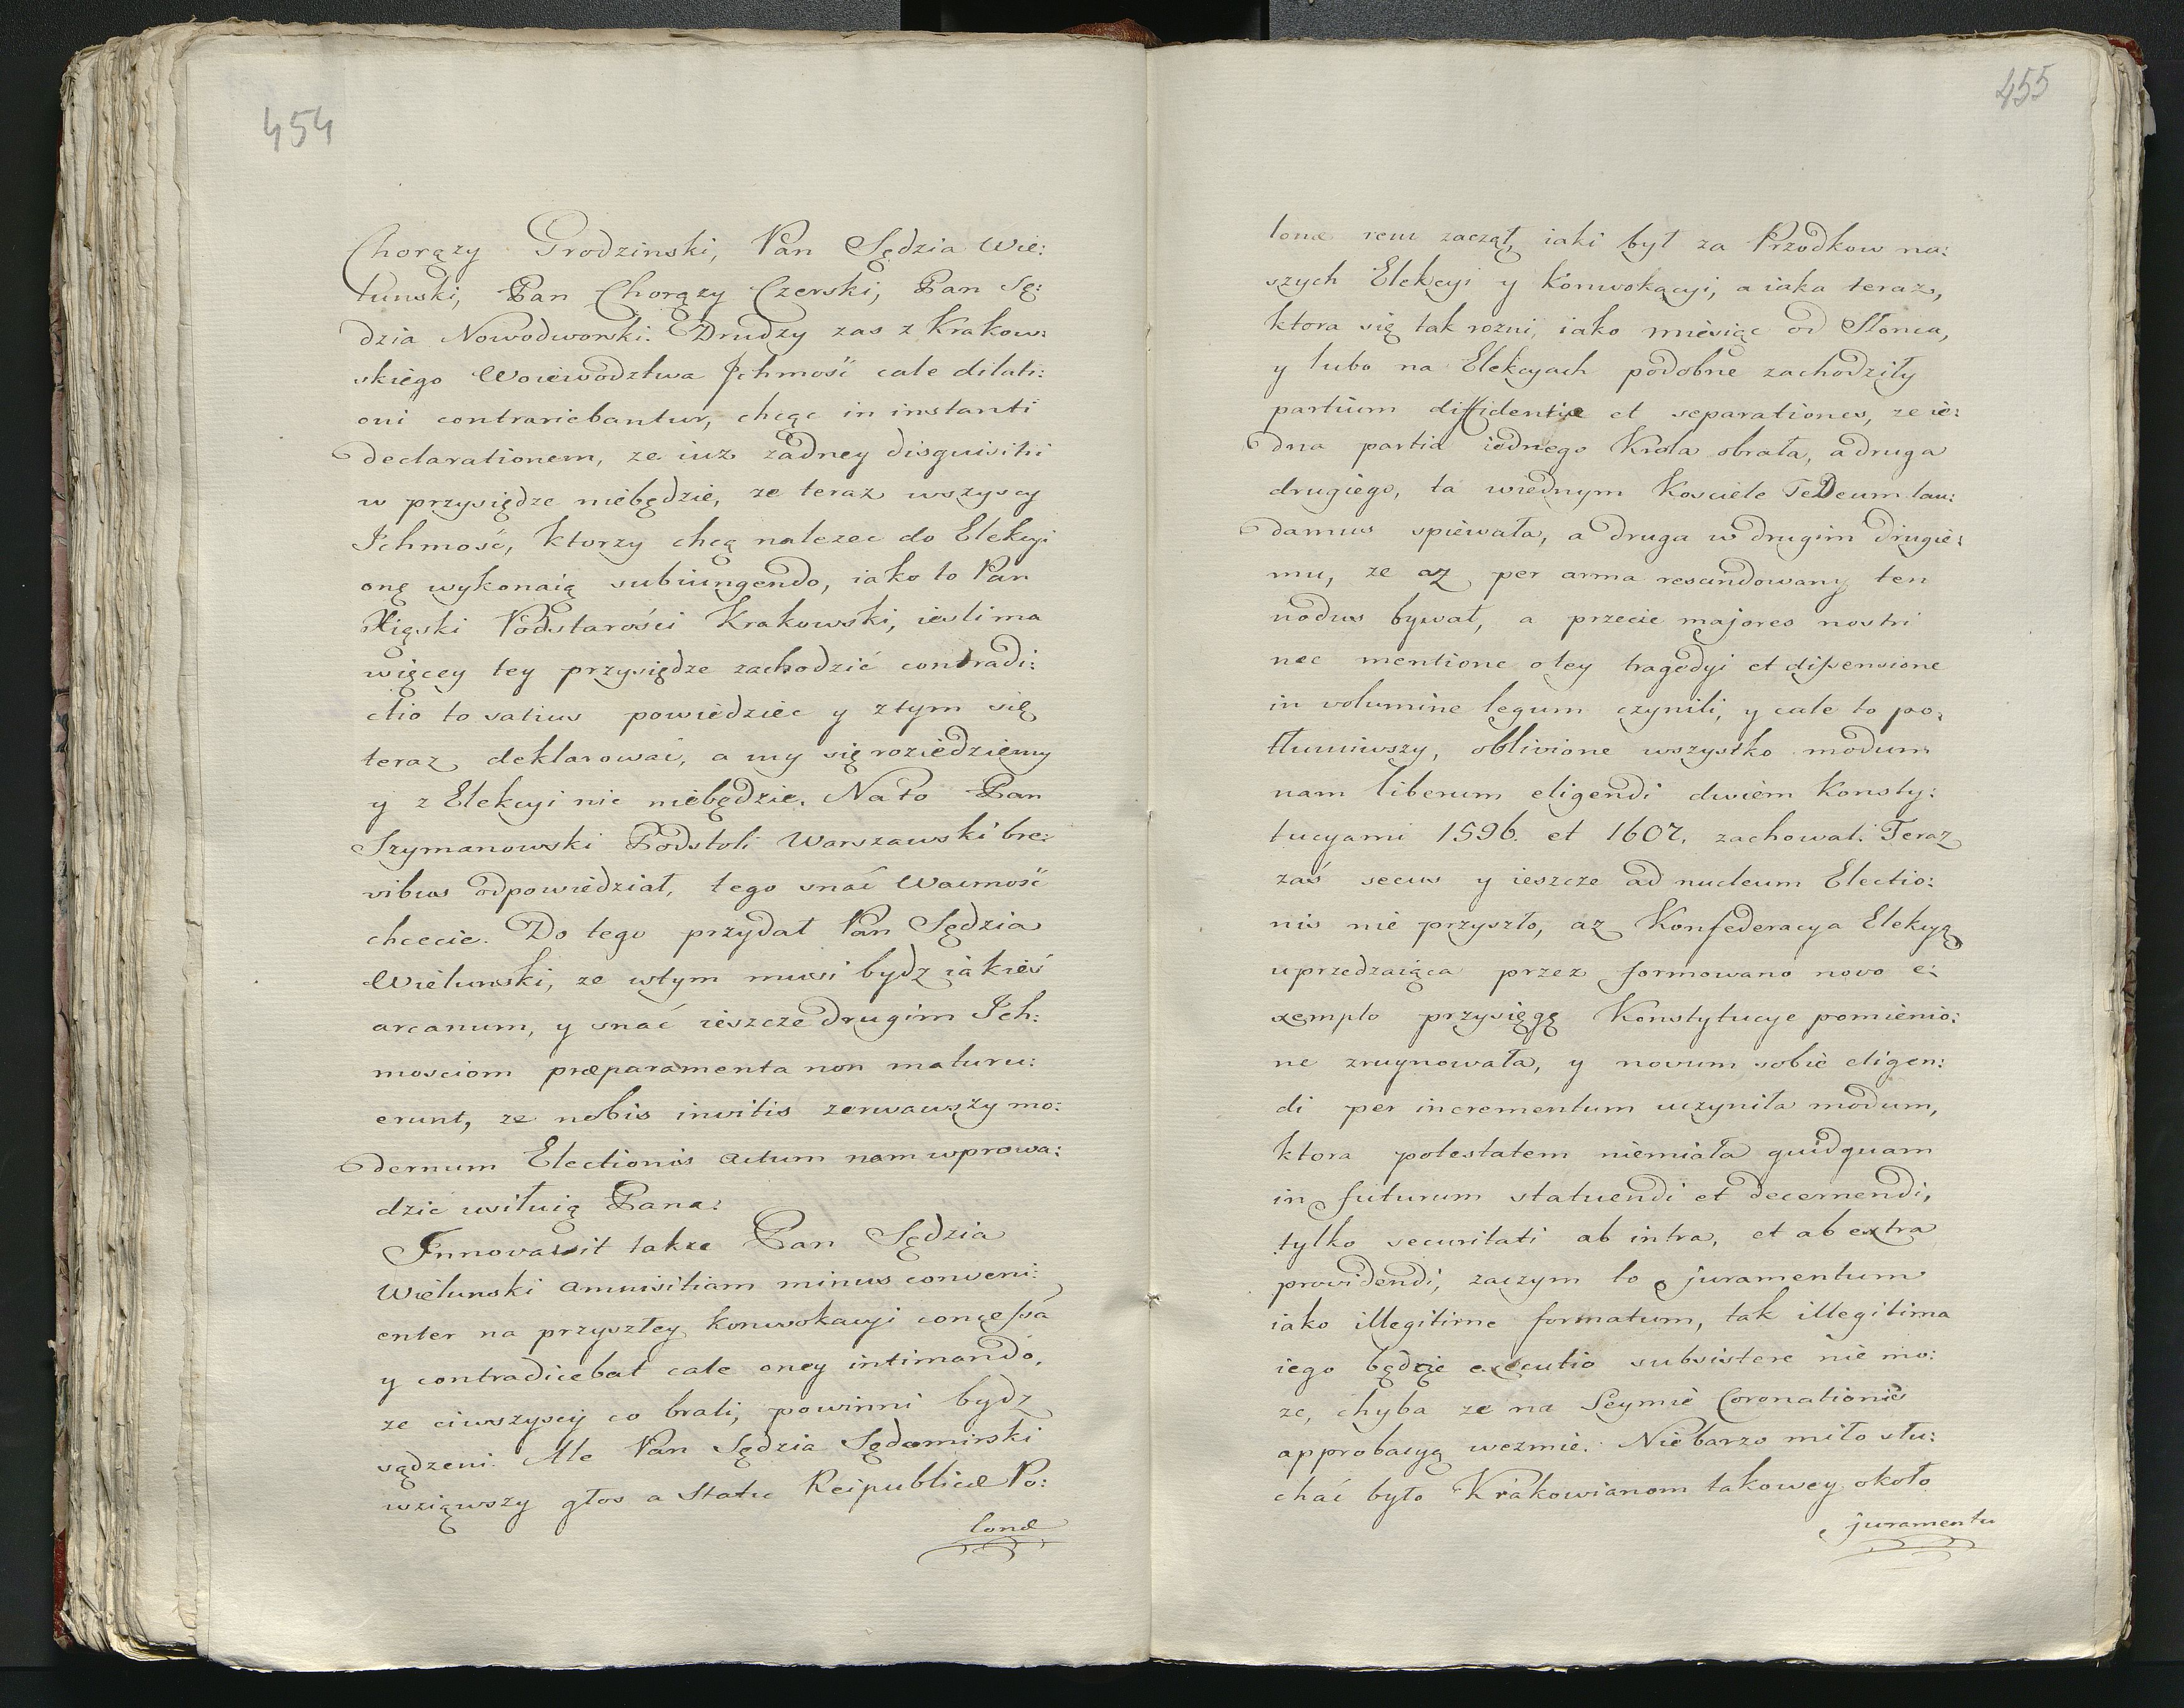 454
Chorązy Grodzinski, Pan Sędzia Wie:
lunski, Pan Chorązy Czerski, Pan Sę:
dzia Nowodworski. Drudzy zas z Krakow:
skiego Woiewodztwa Jchmość cale dilati:
oni contrariebantur, chcąc in instanti
declarationem, ze iuz zadney disquisitii
w przysiędze niebędzie, ze teraz wszyscy
Jchmość, ktorzy chcą nalezec do Elekcyi
onę wykonaią subiungendo, iako to Pan
Xięski Podstarości Krakowski, iesli ma
więcey tey przysiędze zachodzić contradi:
ctio to satius powiedziec y z tym się
teraz deklarować, a my się roziedziemy
y z Elekcyi nic niebędzie. Na to Pan
Szymanowski Podstoli Warszawski bre:
vibus odpowiedział, tego snać Wacmość
chcecie. Do tego przydał Pan Sędzia
Wielunski, ze w tym musi bydz iakieś
arcanum, y snać ieszcze drugim Jch:
mosciom præparamenta non maturu:
erunt, ze nobis invitis zerwawszy mo:
dernum Electionis actum nam wprowa:
dzić usiłuią Pana.
Innovavit takze Pan Sędzia
Wielunski amnisitiam minus conveni:
enter na przyszłey konwokacyi concessa
y contradicebat cale oney intimando,
ze ci wszyscy co brali, powinni bydz
sądzeni. Ale Pan Sędzia Sędomirski
wziąwszy głos a Statu Reipublicæ Po:
lonæ
455
lonæ rem zaczął, iaki był za Przodkow na:
szych Elekcyi y Konwokacyi, a iaka teraz,
ktora się tak rozni, iako miesiąc od Słonca,
y lubo na Elekcyach podobne zachodziły
partium diffidentiæ et separationes, ze ie:
dna partia iednego Krola obrała, a druga
drugiego, ta w iednym Kosciele Te Deum lau:
damus spiewała, a druga w drugim drugie:
mu, ze az per arma rescindowany ten
nodus bywał, a przecie majores nostri
nec mentione o tey tragedyi et dissensione
in volumine legum czynili, y cale to po:
tłumiwszy, oblivione wszystko modum
nam liberum eligendi dwiem Konsty:
tucyami 1596. et 1607. zachowali. Teraz
zaś secus y ieszcze ad nucleum Electio:
nis nie przyszło, az Konfederacya Elekcyą
uprzedzaiąca przez formowano novo e:
xemplo przysięgę Konstytucye pomienio:
ne zruynowała, y novum sobie eligen:
di per incrementum uczyniła modum,
ktora potestatem niemiała quidquam
in futurum statuendi et decernendi,
tylko securitati ab intra, et ab extra
providendi, zaczym to juramentum
iako illegitime formatum, tak illegitima
iego będzie executio subsistere nie mo:
ze, chyba ze na Seymie Coronationis
approbacyą wezmie. Nie barzo miło słu:
chać było Krakowianom takowey około
juramentu